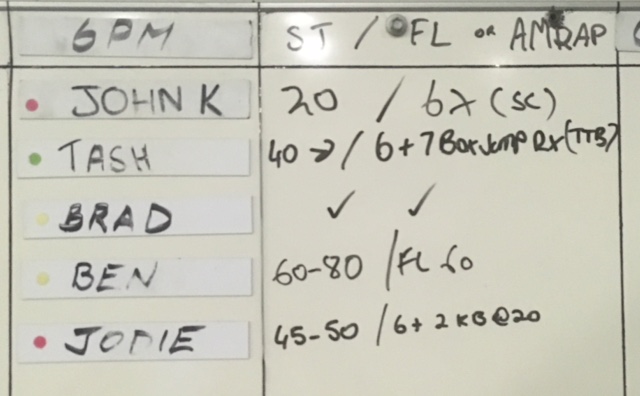 6PM ST / FL or AMRAP
JOHN K 20 / 6x (SC)
TASH 40 → / 6+7 Box Jump Rx (TTB)
BRAD ✓ ✓
BEN 60-80 / FL 60
JODIE 45-50 / 6+ 2 KB @20